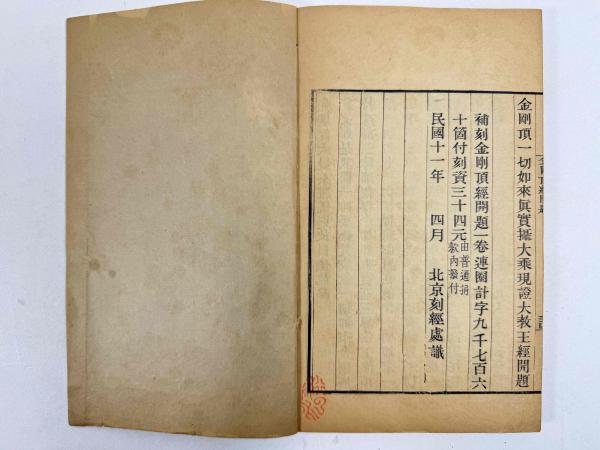 金剛頂一切如來眞實攝大乘現證大教王經開題
補刻金剛頂經開題一卷連圈計字九千七百六
十箇付刻資三十四元由普通捐
款內發付
民國十一年 四月 北京刻經處識
金剛頂經開題